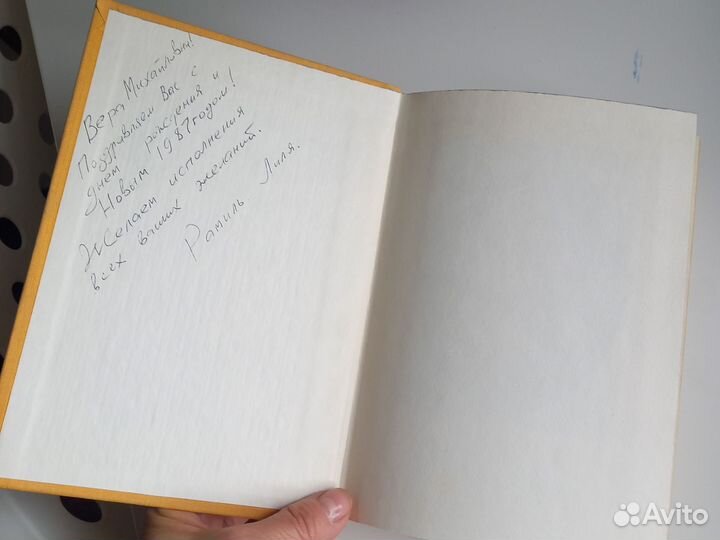 Вера Михайловна!
Поздравляем Вас с
днем рождения и
Новым 1987годом!
Желаем исполнения
всех ваших желаний.
Рамиль Лиля.
Avito